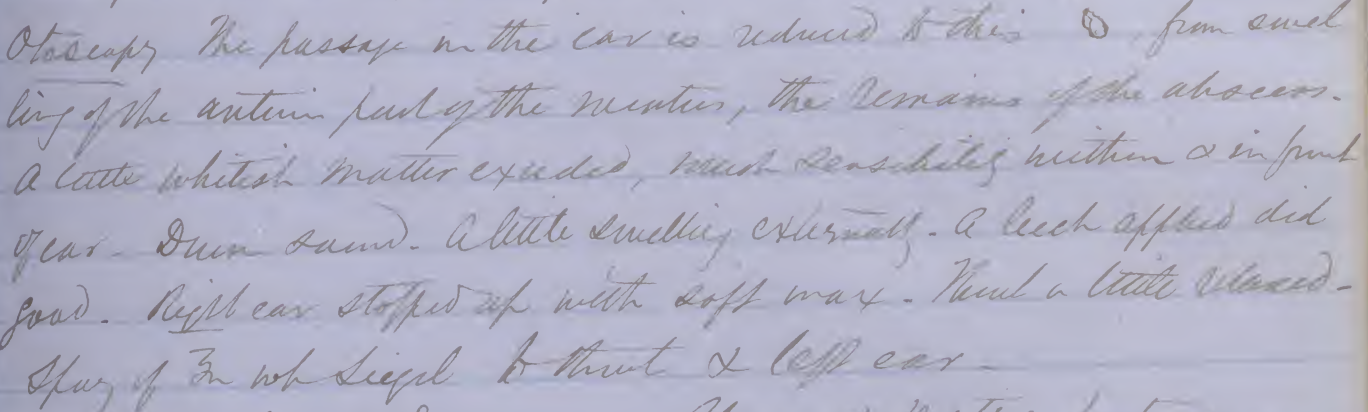 Otoscopy The passage in the ear is reduced to this from swel
ling of the anterior part of the meatus, the remains of the abscess.
A little whitish matter exuded, much sensibility within & in front
of ear - Drum sound. A little swelling externally. A leech applied did
good. Right ear stopped up with soft wax. Throat a little relaxed -
Spray of Zn with Siegel to throat & left ear -